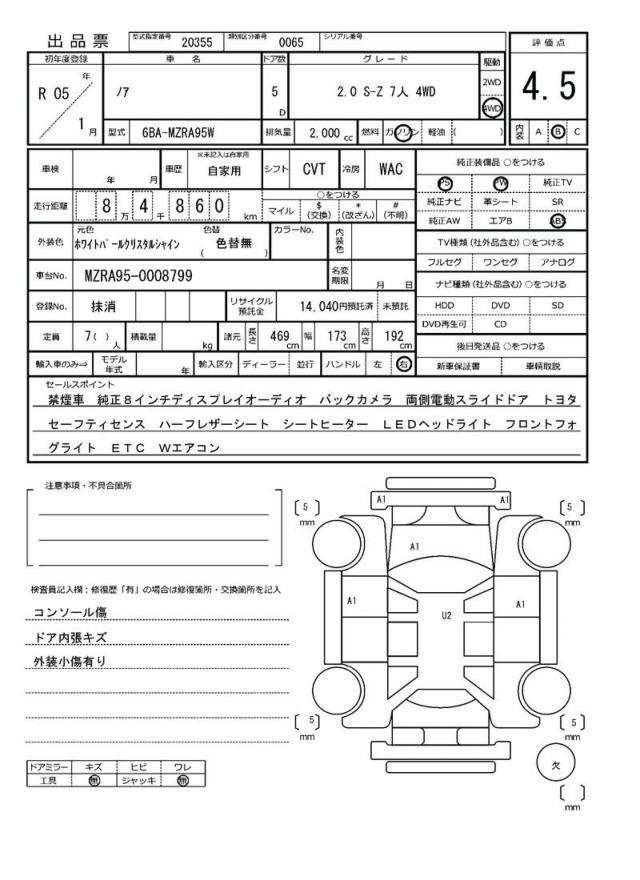 出品票
型式指定番号 20355 類別区分番号 0065 シリアル番号
初年度登録 車名 ドア数 グレード 駆動 評価点
R 05 年 1 月
ノア 5 D 2.0 S-Z 7人 4WD 2WD 4WD 4.5
型式 6BA-MZRA95W 排気量 2,000 cc 燃料 ガソリン 軽油 ( ) 内装 A B C
車検 年 月 車歴 ※未記入は自家用 自家用 シフト CVT 冷房 WAC
走行距離 8 万 4 千 8 6 0 km
○をつける
マイル $ (交換) * (改ざん) # (不明)
外装色 元色 ホワイトパールクリスタルシャイン 色替 ( 色替無 ) カラーNo. 内装色
車台No. MZRA95-0008799 名変期限 月 日
登録No. 抹消 リサイクル預託金 14,040円預託済 未預託
定員 7( ) 人 積載量 kg 諸元 長さ 469 cm 幅 173 cm 高さ 192 cm
輸入車のみ⇒ モデル年式 年 輸入区分 ディーラー 並行 ハンドル 左 右
純正装備品 ○をつける
PS PW 純正TV
純正ナビ 革シート SR
純正AW エアB ABS
TV種類(社外品含む)○をつける
フルセグ ワンセグ アナログ
ナビ種類(社外品含む)○をつける
HDD DVD SD
DVD再生可 CD
後日発送品 ○をつける
新車保証書 車輌取説
セールスポイント
禁煙車 純正8インチディスプレイオーディオ バックカメラ 両側電動スライドドア トヨタ
セーフティセンス ハーフレザーシート シートヒーター LEDヘッドライト フロントフォ
グライト ETC Wエアコン
注意事項・不具合箇所
検査員記入欄:修復歴「有」の場合は修復箇所・交換箇所を記入
コンソール傷
ドア内張キズ
外装小傷有り
ドアミラー キズ ヒビ ワレ
工具 無 ジャッキ 無
A1 A1
[ 5 ] mm [ 5 ] mm
A1
A1 U2 A1
[ 5 ] mm [ 5 ] mm
欠
[ ] mm